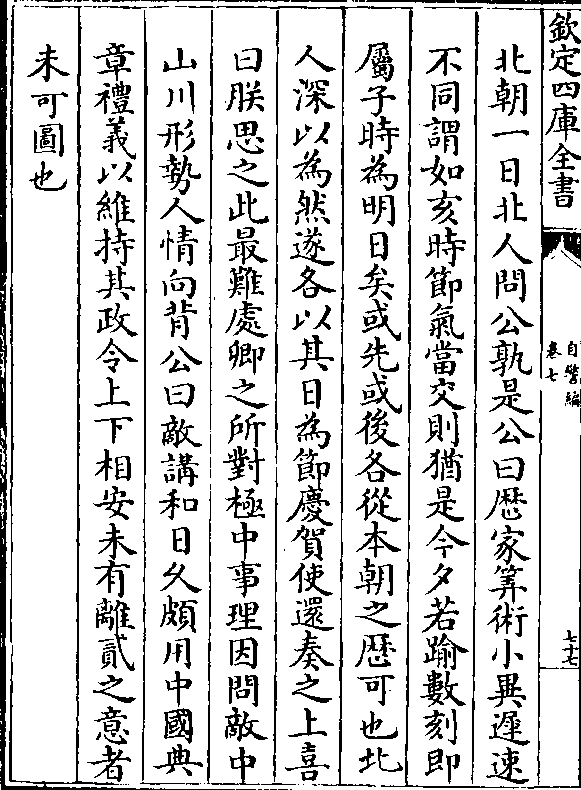 欽定四庫全書
自警編
卷七
七十七
北朝一日北人問公孰是公曰厯家筭術小異遲速
不同謂如亥時節氣當交則猶是今夕若踰數刻即
屬子時為明日矣或先或後各從本朝之厯可也北
人深以為然遂各以其日為節慶賀使還奏之上喜
曰朕思之此最難處卿之所對極中事理因問敵中
山川形勢人情向背公曰敵講和日久頗用中國典
章禮義以維持其政令上下相安未有離貳之意者
未可圖也